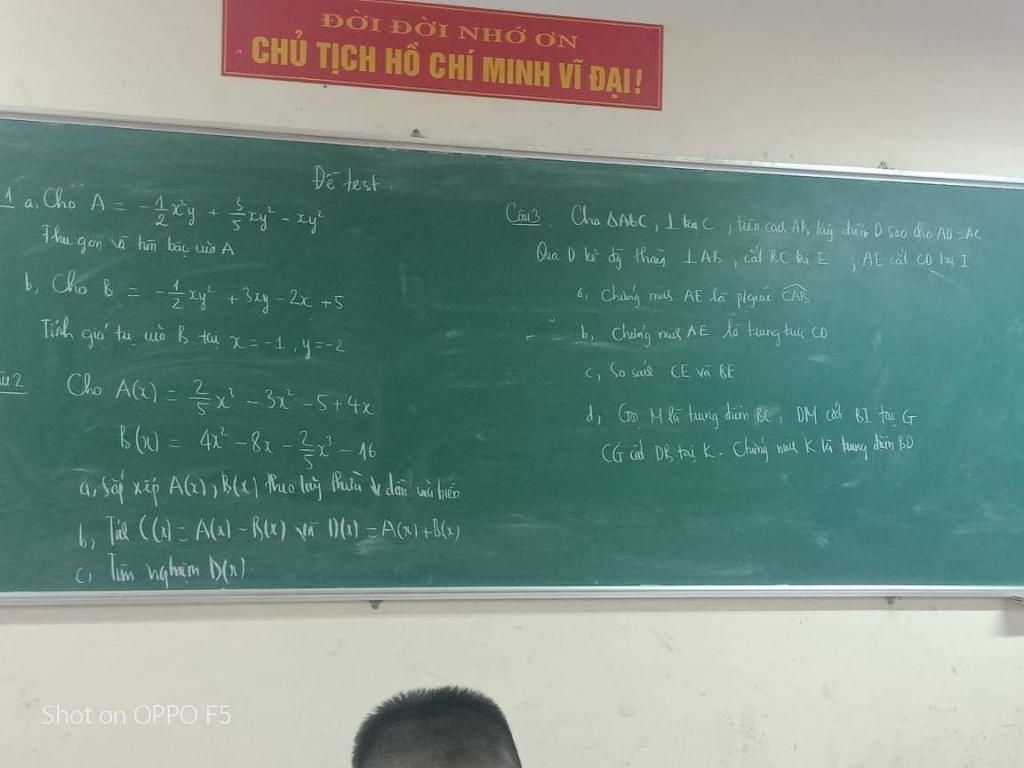 ĐỜI ĐỜI NHỚ ƠN
CHỦ TỊCH HỒ CHÍ MINH VĨ ĐẠI!
Đề test.
1 a, Cho A = -1/2 x²y + 3/5 xy² - xy²
Thu gọn và tìm bậc của A
b, Cho B = -1/2 xy² + 3xy - 2x + 5
Tính giá trị của B tại x = -1, y = -2
Câu 2 Cho A(x) = 2/5 x³ - 3x² - 5 + 4x
B(x) = 4x² - 8x - 2/5 x³ - 16
a, Sắp xếp A(x), B(x) theo luỹ thừa ↓ dần của biến
b, C(x) = A(x) - B(x) và D(x) = A(x) + B(x)
c, Tìm nghiệm D(x)
Câu 3. Cho ΔABC, ⊥ tại C, trên cạnh AB lấy điểm D sao cho AD = AC
Qua D kẻ đg thẳng ⊥ AB, cắt BC tại E ; AE cắt CD tại I
a, Chứng minh AE là p/giác CAB
b, Chứng minh AE là trung trực CD
c, So sánh CE và BE
d, Gọi M là trung điểm BC, DM cắt BI tại G
CG cắt DB tại K. Chứng minh K là trung điểm BD
Shot on OPPO F5